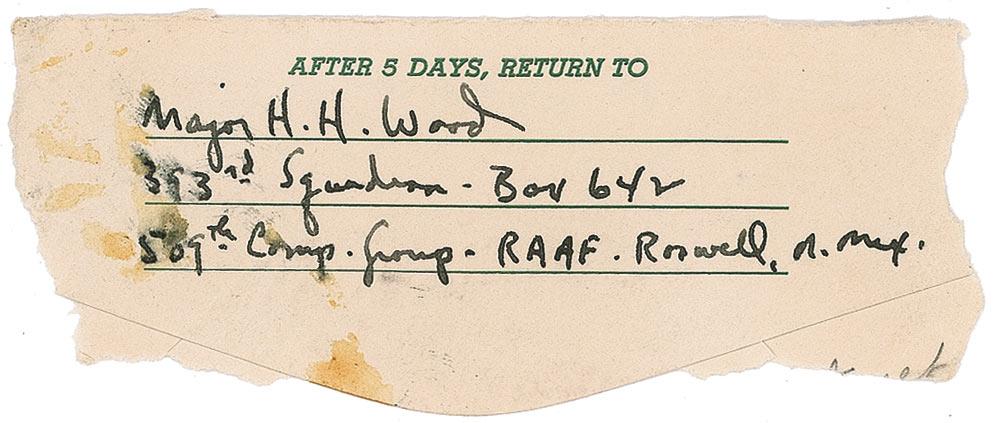 AFTER 5 DAYS, RETURN TO
Major H. H. Wood
393rd Squadron - Box 642
509th Comp. Group - RAAF. Roswell, N. Mex.